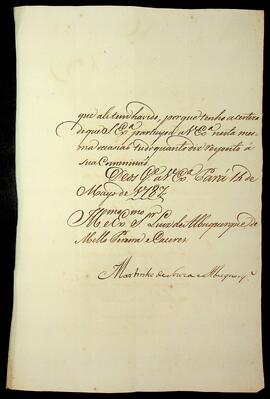 que ali tem havido, porque tenho a certeza
de que S. Exª. a V. Exª. nesta mes
ma occasião tudo quanto diz respeito á
sua Commissão.
Deos Gᵉ. a V. Exª. Pará 14 de
Mayo de 1787.
Illᵐᵒ. e Exᵐᵒ. Sʳ. Luiz de Albuquerque de
Mello Pereira e Caceres
Martinho de Souza e Albuquerqᵉ.